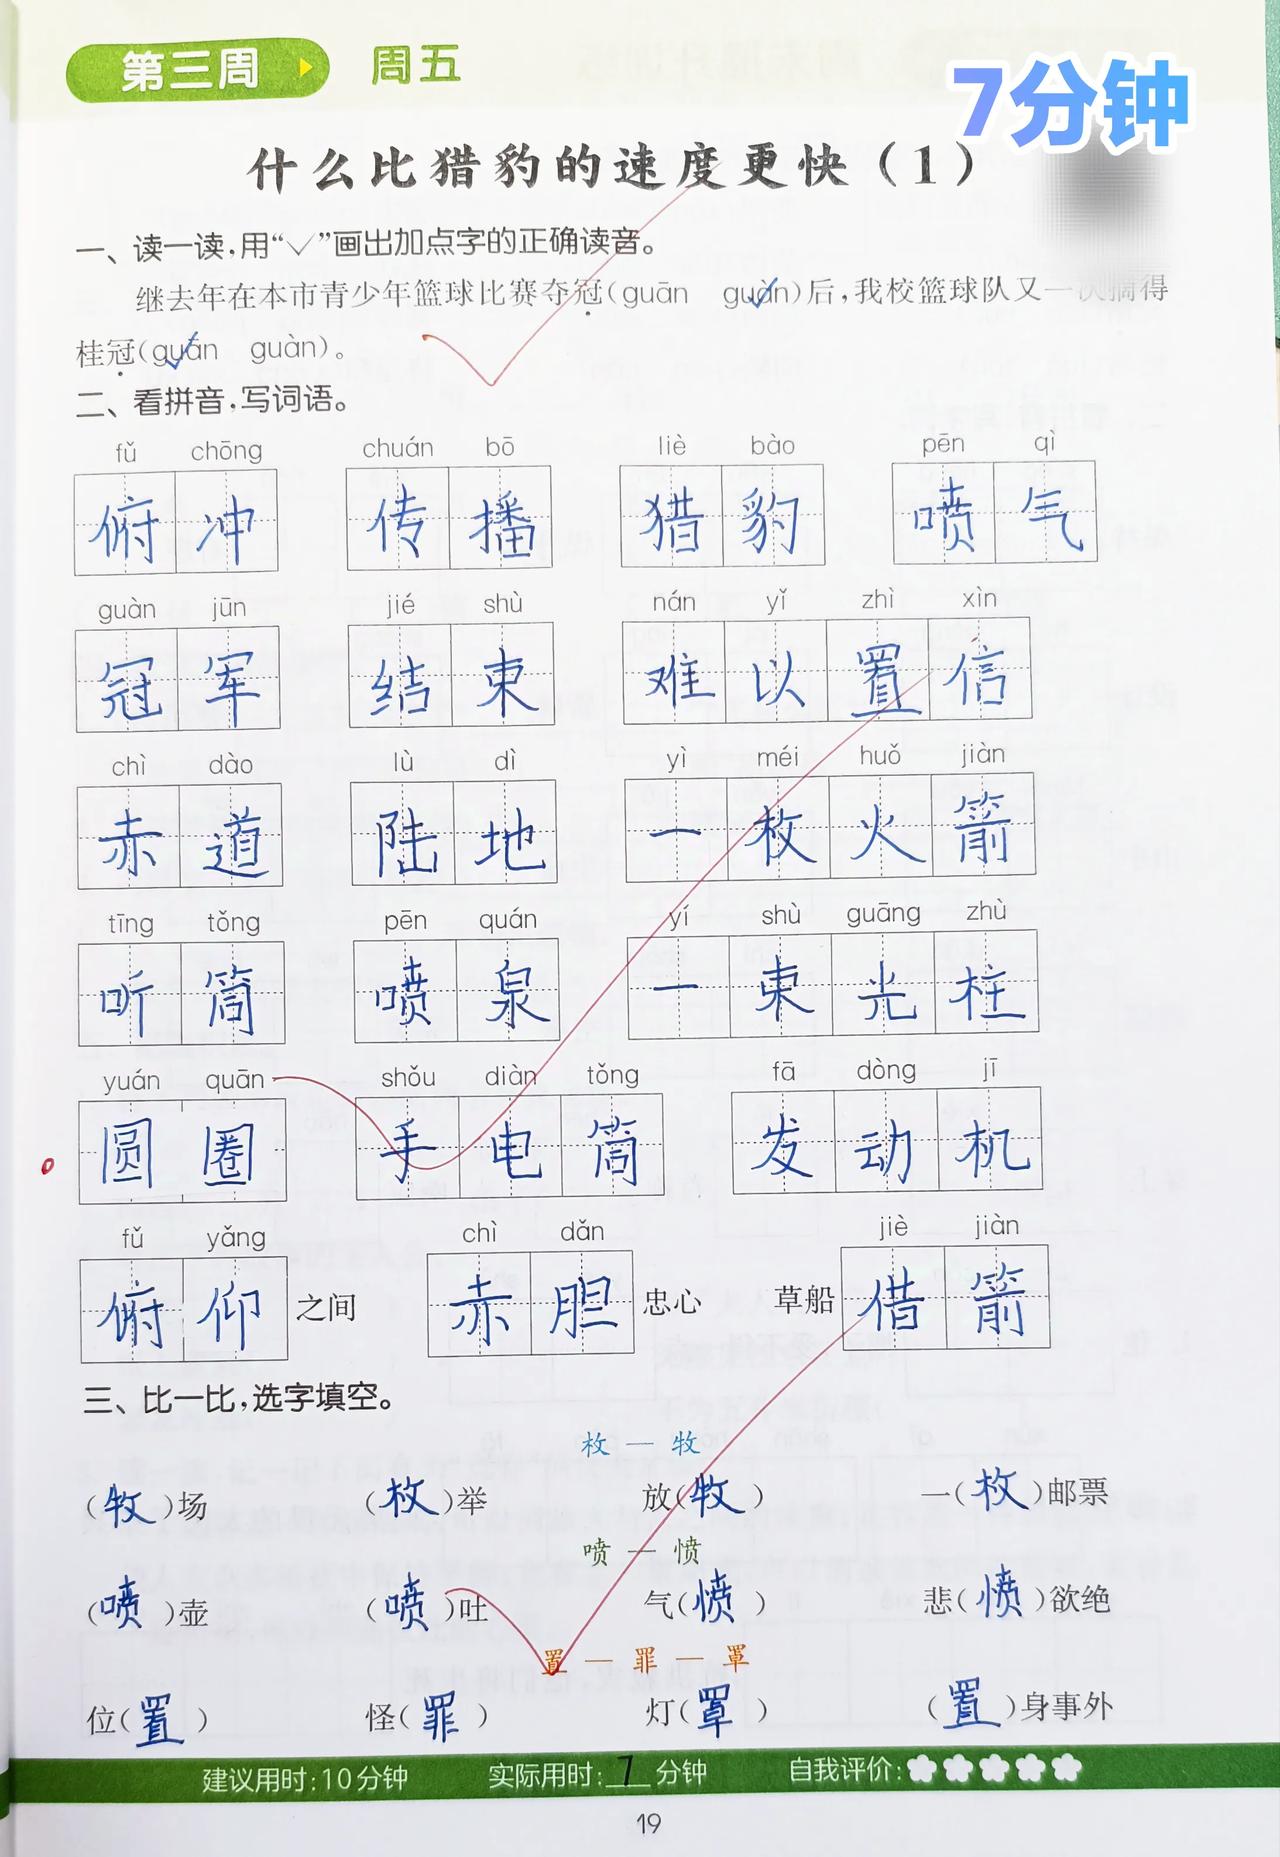 第三周 周五
7分钟
什么比猎豹的速度更快（1）
一、读一读，用“✓”画出加点字的正确读音。
继去年在本市青少年篮球比赛夺冠（guān guàn）后，我校篮球队又一次摘得
桂冠（guān guàn）。
二、看拼音，写词语。
fǔ chōng chuán bō liè bào pēn qì
俯冲 传播 猎豹 喷气
guàn jūn jié shù nán yǐ zhì xìn
冠军 结束 难以置信
chì dào lù dì yì méi huǒ jiàn
赤道 陆地 一枚火箭
tīng tǒng pēn quán yí shù guāng zhù
听筒 喷泉 一束光柱
yuán quān shǒu diàn tǒng fā dòng jī
圆圈 手电筒 发动机
fǔ yǎng chì dǎn jiè jiàn
俯仰之间 赤胆忠心 草船借箭
三、比一比，选字填空。
枚 — 牧
（牧）场 （枚）举 放（牧） 一（枚）邮票
喷 — 愤
（喷）壶 （喷）吐 气（愤） 悲（愤）欲绝
置 — 罪 — 罩
位（置） 怪（罪） 灯（罩） （置）身事外
建议用时：10分钟 实际用时：7分钟 自我评价：
19